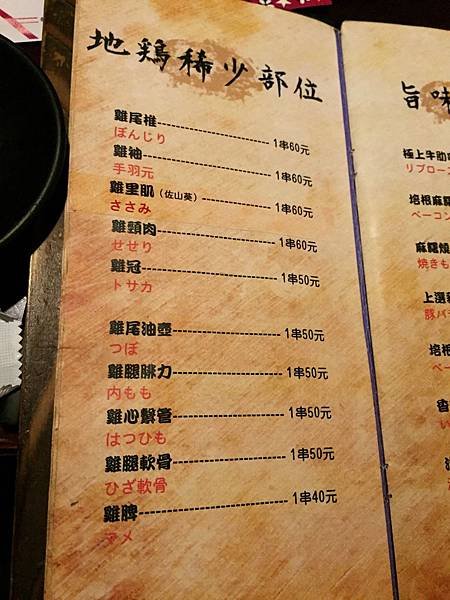 地鶏稀少部位
雞尾椎----------------------1串60元
ぼんじり
雞袖----------------------1串60元
手羽元
雞里肌（佐山葵）--------------1串60元
ささみ
雞頸肉----------------------1串60元
せせり
雞冠----------------------1串50元
トサカ
雞尾油壺----------------------1串50元
つぼ
雞腿腓力----------------------1串50元
内もも
雞心繫管----------------------1串50元
はつひも
雞腿軟骨----------------------1串50元
ひざ軟骨
雞脾----------------------1串40元
マメ
旨味
極上牛肋
リブロー
培根麻糬
ベーコン
麻糬燒
焼きも
上選
豚バラ
培根
ベー
香
い